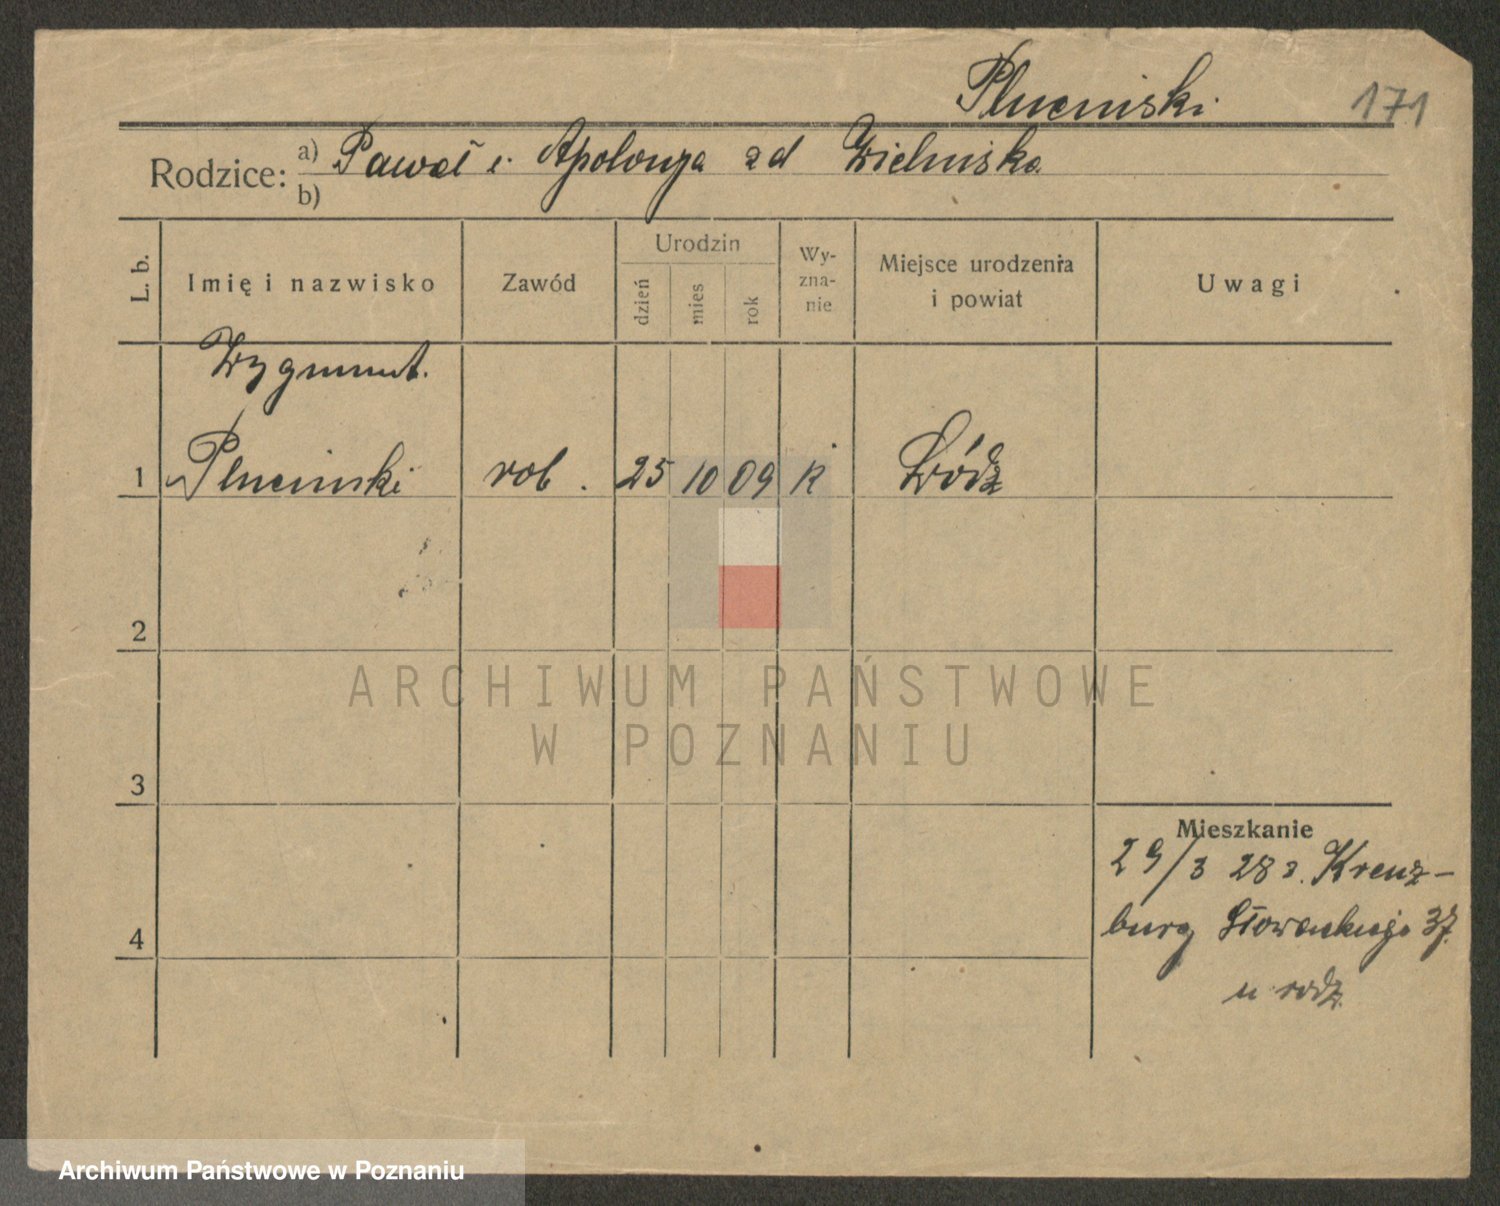 Pluciński 171
Rodzice: a) Paweł i Apolonja zd Zielińska
b)
L. b. Imię i nazwisko Zawód Urodzin dzień mies rok Wy-zna-nie Miejsce urodzenia i powiat Uwagi
Zygmunt.
1 Pluciński rob. 25 10 09 R Łódz
2
3
4
Mieszkanie
29/3 28 z. Kreuz-
burg Słowackiego 37.
u rodz.
ARCHIWUM PAŃSTWOWE
W POZNANIU
Archiwum Państwowe w Poznaniu